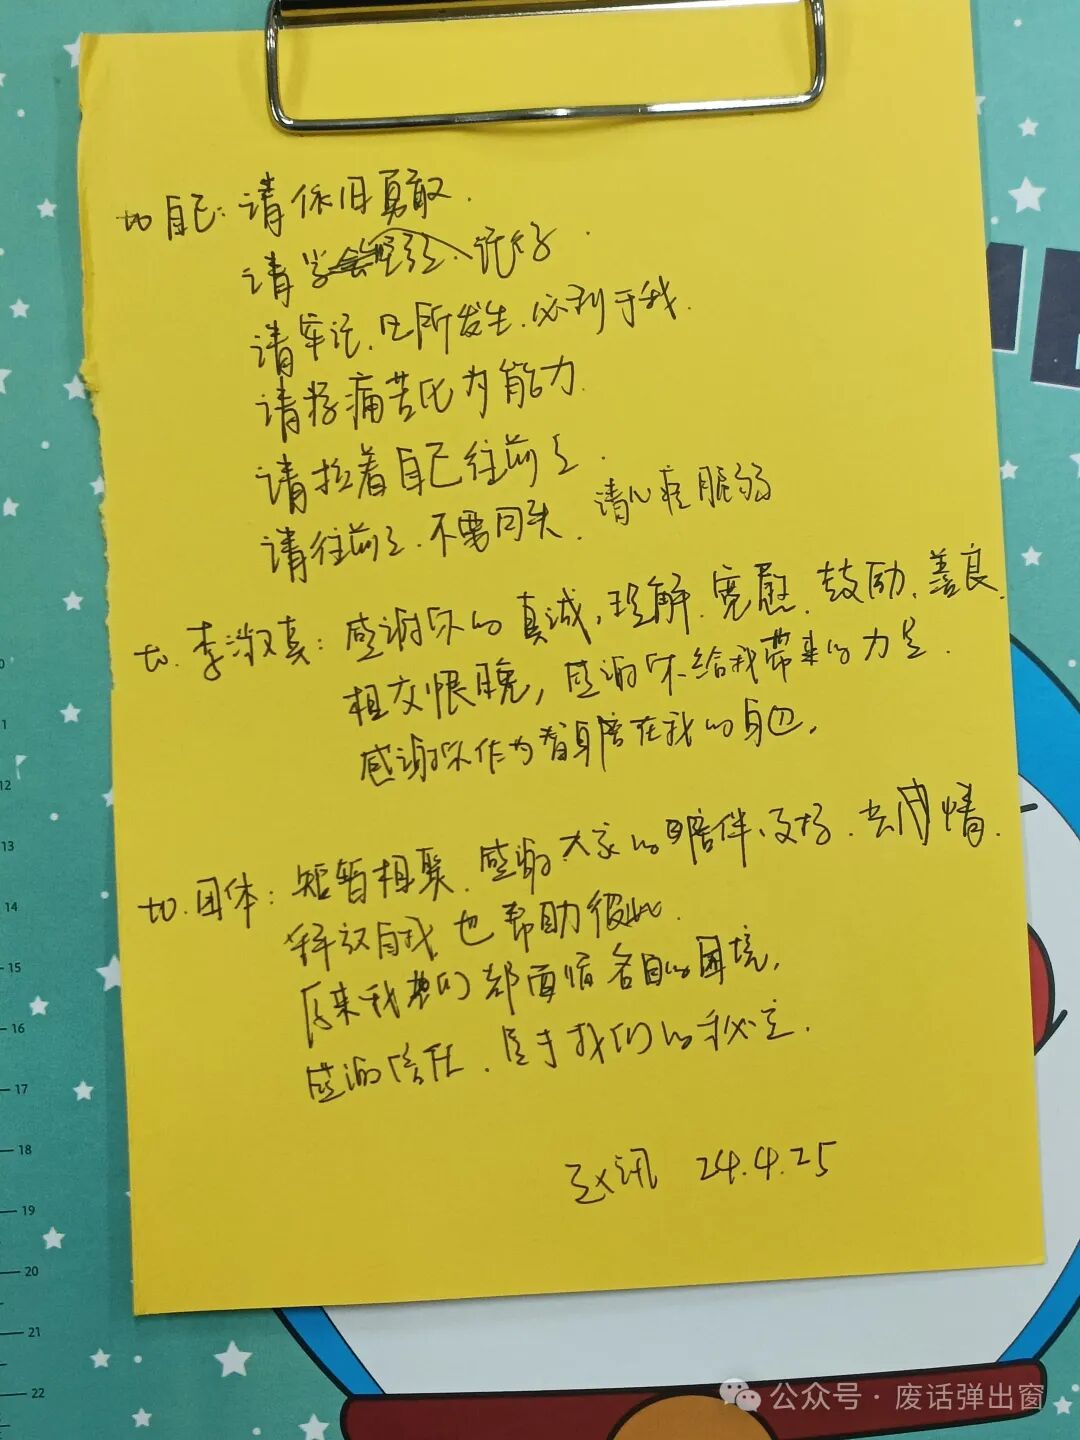 to 自己:请依旧勇敢.
请学会 记好.
请牢记.凡所发生.必利于我.
请将痛苦化为能力.
请拉着自己往前走.
请往前走.不要回头. 请心疼脆弱
to.李淑真:感谢你的真诚,理解.宽慰.鼓励.善良.
相交恨晚,感谢你给我带来的力量.
感谢你作为替身陪在我的身边.
to.团体:短暂相聚.感谢大家的陪伴、支持.共情.
释放自我也帮助彼此.
原来我们都面临各自的困境,
感谢信任.属于我们的秘密.
赵讯 24.4.25
0
1
12
13
14
15
16
17
18
19
20
21
22
公众号·废话弹出窗